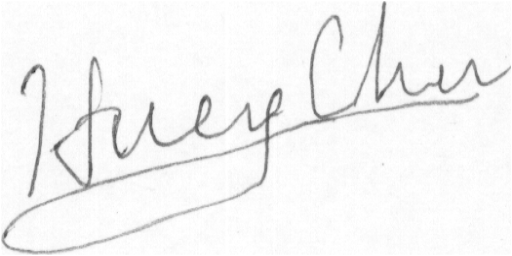 Huey Chen